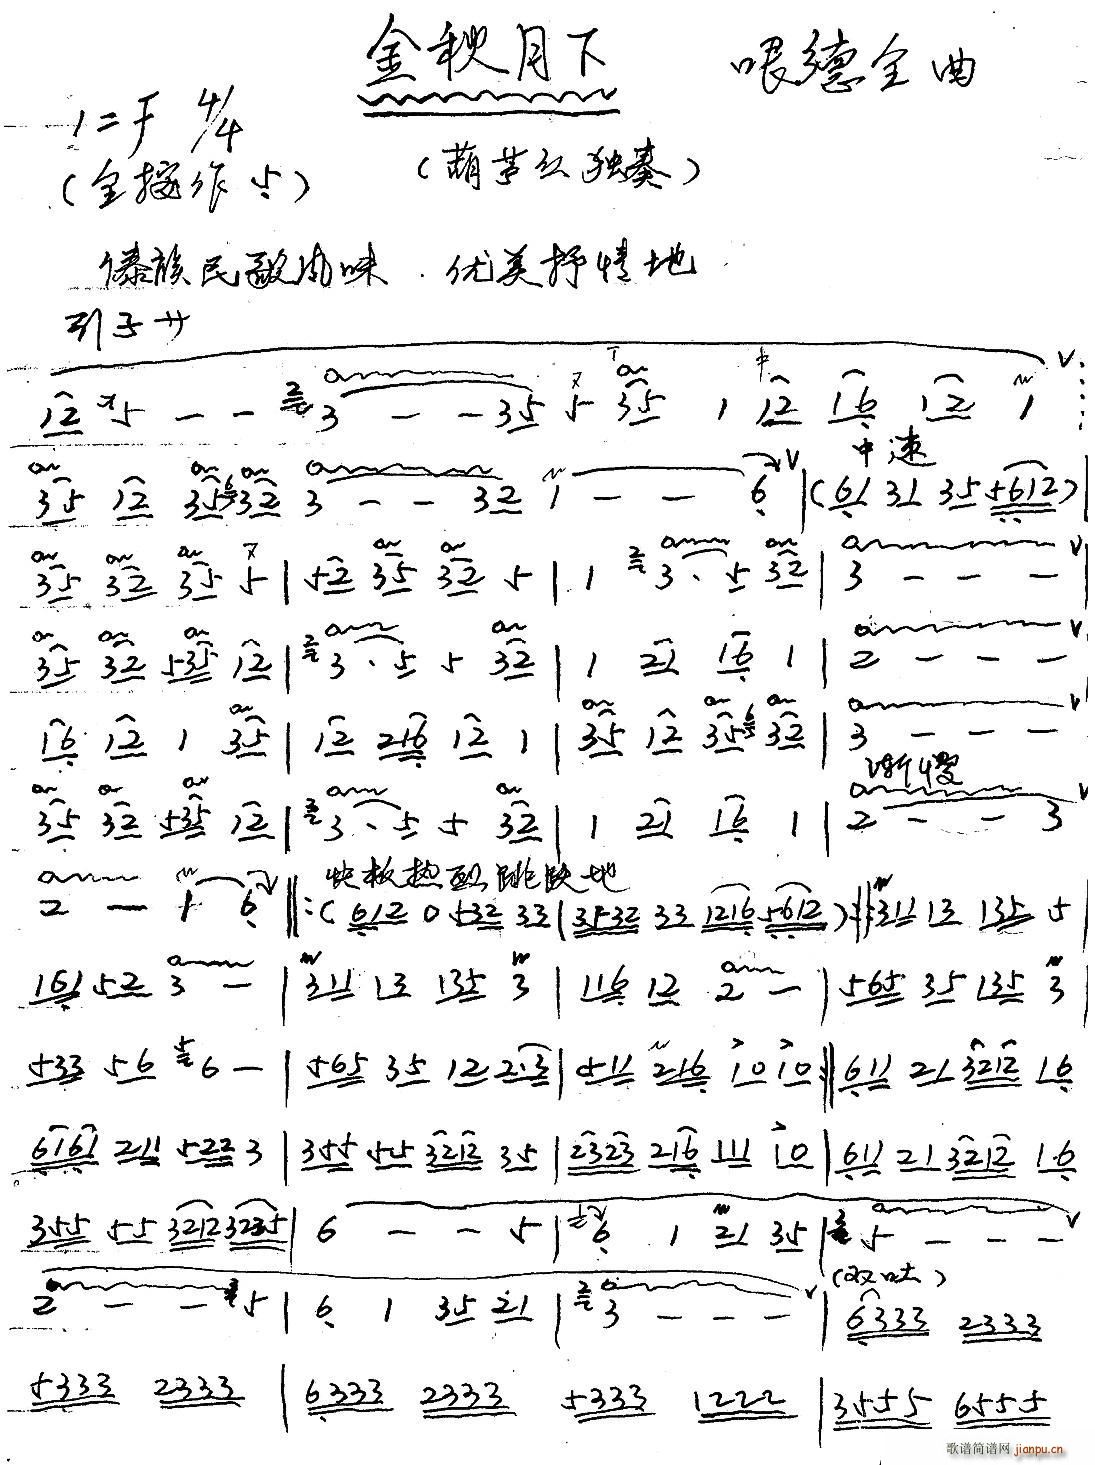 金秋月下
哏德全曲
1=F 4/4
(全按作5)
(葫芦丝独奏)
傣族民歌风味．优美抒情地
引子 サ
12 5 - - 3 - - 35 5 35 1 12 16 12 1
中速
35 12 35 32 3 - - 32 1 - - 6 | (61 31 35 5612) |
35 32 35 5 | 52 35 32 5 | 1 3· 5 32 | 3 - - -
35 32 535 12 | 3· 5 5 32 | 1 21 16 1 | 2 - - -
16 12 1 35 | 12 216 12 1 | 35 12 35 32 | 3 - - -
渐慢
35 32 535 12 | 3· 5 5 32 | 1 21 16 1 | 2 - - 3
快板热烈跳跃地
2 - 1 6 ‖: (612 0 532 33 | 3532 33 1216 5612) :‖: 311 13 135 5
161 52 3 - | 311 13 135 3 | 116 12 2 - | 565 35 135 3
533 56 6 - | 565 35 12 2·3 | 511 216 10 10 :‖ 611 21 3212 16
6161 211 522 3 | 355 55 3212 35 | 2323 216 111 10 | 611 21 3212 16
355 55 3212 3235 | 6 - - 5 | 6 1 21 35 | 5 - - -
(双吐)
2 - - 5 | 6 1 35 21 | 3 - - - | 6333 2333
5333 2333 | 6333 2333 5333 1222 | 3555 6555
歌谱简谱网 jianpu.cn